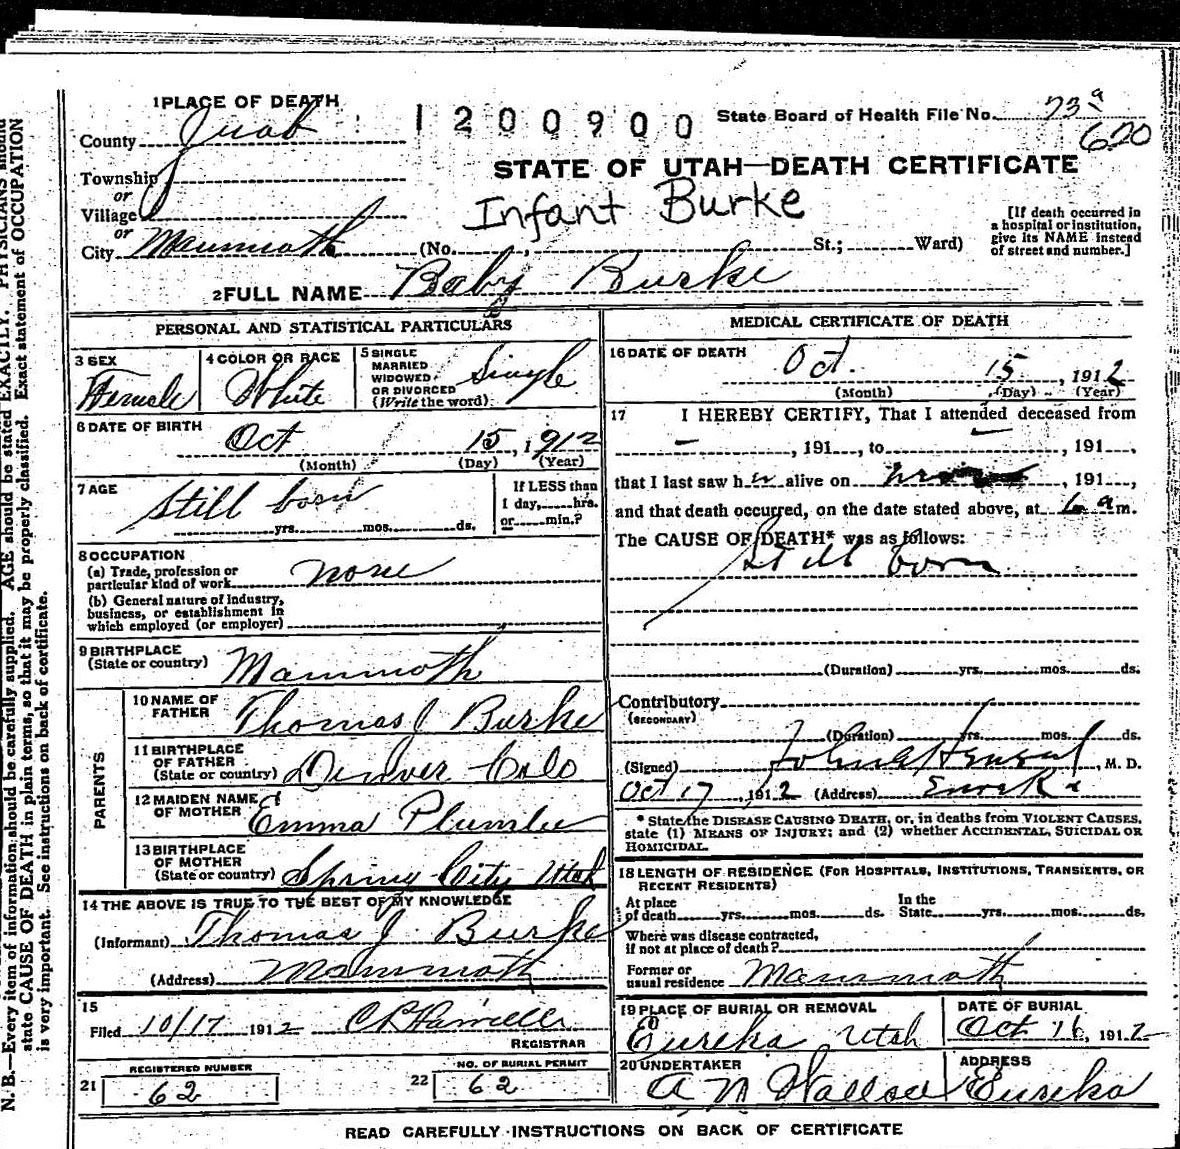 1 PLACE OF DEATH
1200900
State Board of Health File No. 73 a
620
County Juab
STATE OF UTAH—DEATH CERTIFICATE
Township
or
Village
or
City Mammoth (No. , St.; Ward)
Infant Burke
[If death occurred in
a hospital or institution,
give its NAME instead
of street and number.]
2 FULL NAME Baby Burke
PERSONAL AND STATISTICAL PARTICULARS
3 SEX
Female
4 COLOR OR RACE
White
5 SINGLE
MARRIED
WIDOWED
OR DIVORCED
(Write the word)
Single
6 DATE OF BIRTH
Oct 15, 1912
(Month) (Day) (Year)
7 AGE
Still born
yrs. mos. ds.
If LESS than
1 day, hrs.
or min.?
8 OCCUPATION
(a) Trade, profession or
particular kind of work none
(b) General nature of industry,
business, or establishment in
which employed (or employer)
9 BIRTHPLACE
(State or country) Mammoth
PARENTS
10 NAME OF
FATHER Thomas J Burke
11 BIRTHPLACE
OF FATHER
(State or country) Denver Colo
12 MAIDEN NAME
OF MOTHER Emma Plumlee
13 BIRTHPLACE
OF MOTHER
(State or country) Spring City Utah
14 THE ABOVE IS TRUE TO THE BEST OF MY KNOWLEDGE
(Informant) Thomas J Burke
(Address) Mammoth
15
Filed 10/17 1912
REGISTRAR
REGISTERED NUMBER
21 62
NO. OF BURIAL PERMIT
22 62
MEDICAL CERTIFICATE OF DEATH
16 DATE OF DEATH
Oct. 15, 1912
(Month) (Day) (Year)
17 I HEREBY CERTIFY, That I attended deceased from
— , 191 , to — , 191 ,
that I last saw h er alive on , 191 ,
and that death occurred, on the date stated above, at 6 a m.
The CAUSE OF DEATH* was as follows:
Still born
(Duration) yrs. mos. ds.
Contributory
(SECONDARY)
(Duration) yrs. mos. ds.
(Signed) , M. D.
Oct 17, 1912 (Address) Eureka
* State the DISEASE CAUSING DEATH, or, in deaths from VIOLENT CAUSES,
state (1) MEANS OF INJURY; and (2) whether ACCIDENTAL, SUICIDAL OR
HOMICIDAL.
18 LENGTH OF RESIDENCE (FOR HOSPITALS, INSTITUTIONS, TRANSIENTS, OR
RECENT RESIDENTS)
At place
of death yrs. mos. ds.
In the
State yrs. mos. ds.
Where was disease contracted,
if not at place of death?
Former or
usual residence Mammoth
19 PLACE OF BURIAL OR REMOVAL
Eureka Utah
DATE OF BURIAL
Oct 16, 1912
20 UNDERTAKER
A N Wallace
ADDRESS
Eureka
READ CAREFULLY INSTRUCTIONS ON BACK OF CERTIFICATE
N. B.—Every item of information should be carefully supplied. AGE should be stated EXACTLY. PHYSICIANS should
state CAUSE OF DEATH in plain terms, so that it may be properly classified. Exact statement of OCCUPATION
is very important. See instructions on back of certificate.